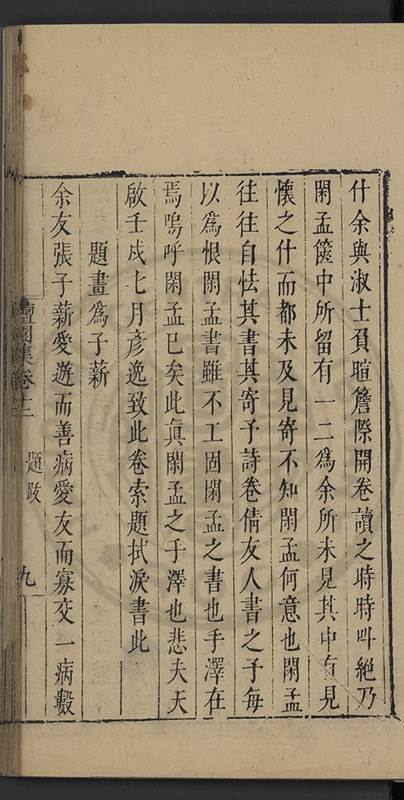 什余與淑士負暄簷際開卷讀之時時叫絶乃
閑孟篋中所留有一二為余所未見其中有見
懷之什而都未及見寄不知閑孟何意也閑孟
往往自怯其書其寄予詩卷倩友人書之予每
以為恨閑孟書雖不工固閑孟之書也手澤在
焉嗚呼閑孟已矣此真閑孟之手澤也悲夫天
啟壬戌七月彥逸致此卷索題拭淚書此
題畫為子薪
余友張子薪愛遊而善病愛友而寡交一病數
園集卷十二
題跋
九